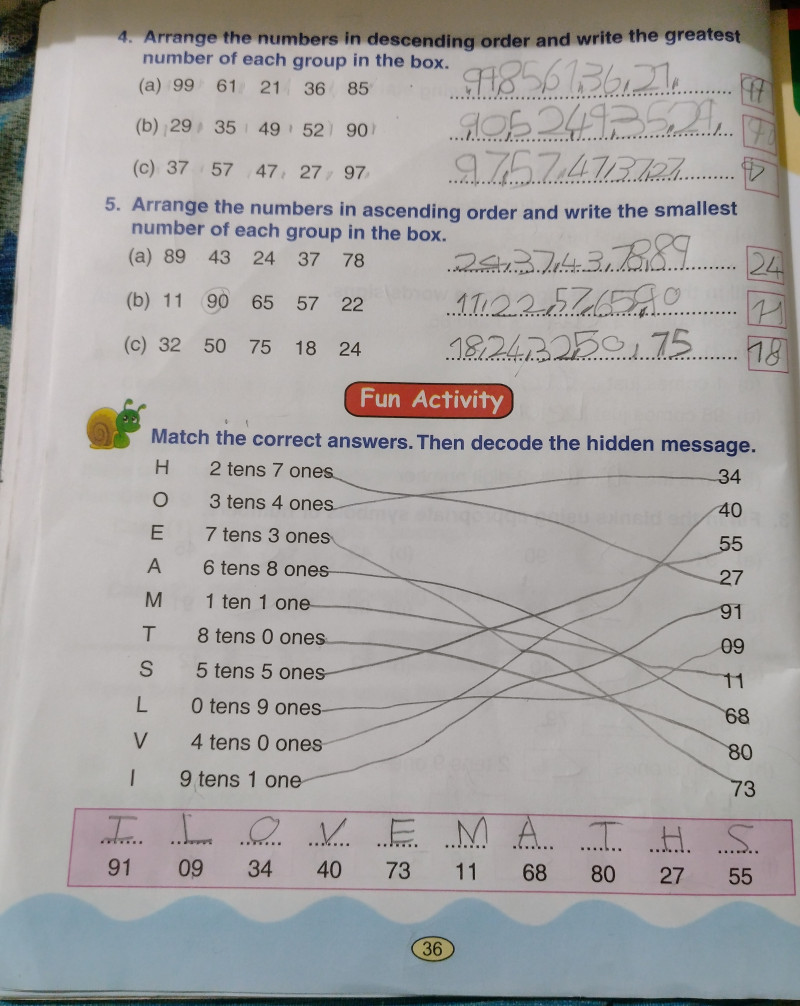 4. Arrange the numbers in descending order and write the greatest
number of each group in the box.
(a) 99 61 21 36 85 99,85,61,36,21,
(b) 29 35 49 52 90 ,90,52,49,35,29, 90
(c) 37 57 47 27 97 97,57,47,37,27
5. Arrange the numbers in ascending order and write the smallest
number of each group in the box.
(a) 89 43 24 37 78 24,37,43,78,89 24
(b) 11 90 65 57 22 11,22,57,65,90 11
(c) 32 50 75 18 24 18,24,32,50,75 18
Fun Activity
Match the correct answers. Then decode the hidden message.
H 2 tens 7 ones 34
O 3 tens 4 ones 40
E 7 tens 3 ones 55
A 6 tens 8 ones 27
M 1 ten 1 one 91
T 8 tens 0 ones 09
S 5 tens 5 ones 11
L 0 tens 9 ones 68
V 4 tens 0 ones 80
I 9 tens 1 one 73
I L O V E M A T H S
91 09 34 40 73 11 68 80 27 55
36